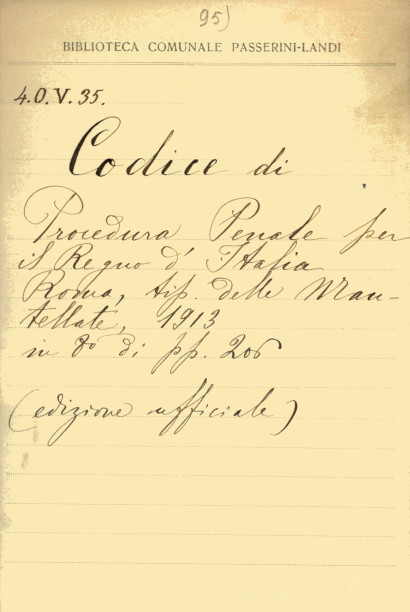 95)
BIBLIOTECA COMUNALE PASSERINI-LANDI
4.O.V.35.
Codice di
Procedura Penale per
il Regno d' Italia
Roma, tip. delle Man-
tellate, 1913
in 8º di pp. 206
(edizione ufficiale)